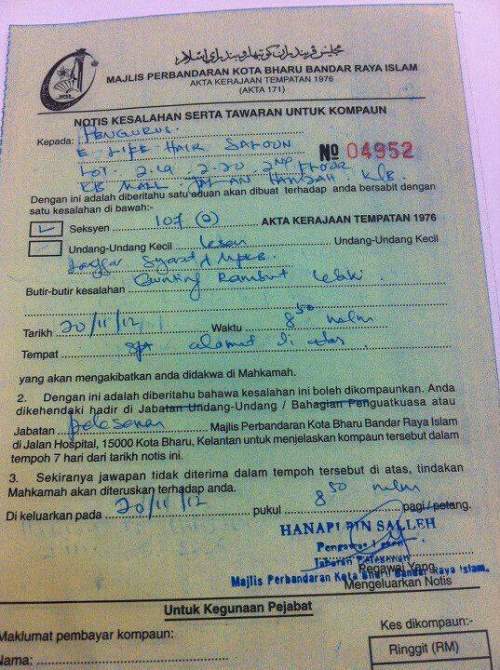 مجلس ڤربندرن کوتا بهارو بندر راي اسلام
MAJLIS PERBANDARAN KOTA BHARU BANDAR RAYA ISLAM
AKTA KERAJAAN TEMPATAN 1976
(AKTA 171)
NOTIS KESALAHAN SERTA TAWARAN UNTUK KOMPAUN
Kepada: PENGURUS
E LIFE HAIR SALOON
No 04952
LOT. 2.19 2-20 2ND FLOOR
KB MALL. JLN HAMZAH K/B.
Dengan ini adalah diberitahu satu aduan akan dibuat terhadap anda bersabit dengan
satu kesalahan di bawah:-
Seksyen 107 (2) AKTA KERAJAAN TEMPATAN 1976
Undang-Undang Kecil Lesen Undang-Undang Kecil
Langgar Syarat MPKB.
Butir-butir kesalahan Gunting Rambut lelaki.
Tarikh 20/11/12 Waktu 8 50 malm
Tempat spt alamat di atas
yang akan mengakibatkan anda didakwa di Mahkamah.
2. Dengan ini adalah diberitahu bahawa kesalahan ini boleh dikompaunkan. Anda
dikehendaki hadir di Jabatan Undang-Undang / Bahagian Penguatkuasa atau
Jabatan pelesenan Majlis Perbandaran Kota Bharu Bandar Raya Islam
di Jalan Hospital, 15000 Kota Bharu, Kelantan untuk menjelaskan kompaun tersebut dalam
tempoh 7 hari dari tarikh notis ini.
3. Sekiranya jawapan tidak diterima dalam tempoh tersebut di atas, tindakan
Mahkamah akan diteruskan terhadap anda.
Di keluarkan pada 20/11/12 pukul 8 50 malm pagi/petang.
HANAPI BIN SALLEH
Pengawas Lesen
Jabatan Pelesenan
Pegawai Yang
Majlis Perbandaran Kota Bharu Bandar Raya Islam.
Mengeluarkan Notis
Untuk Kegunaan Pejabat
Maklumat pembayar kompaun:
Kes dikompaun:-
Nama:
Ringgit (RM)